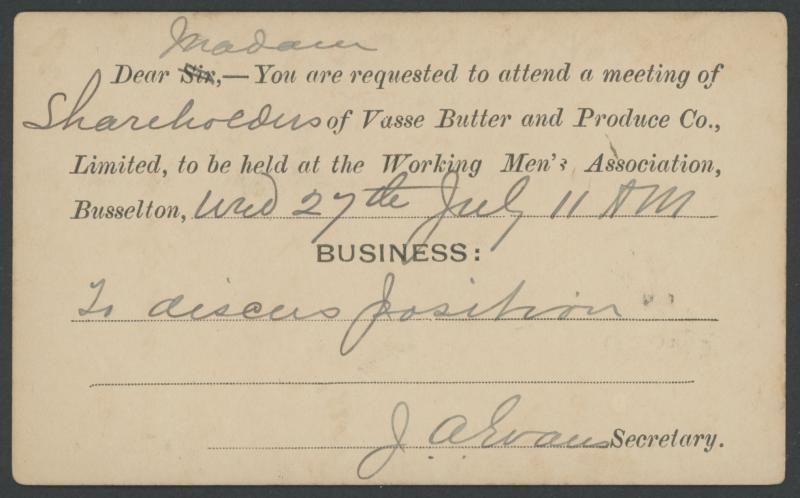 Madam
Dear Sir,—You are requested to attend a meeting of
Shareholders of Vasse Butter and Produce Co.,
Limited, to be held at the Working Men's Association,
Busselton, Wed 27th July 11 AM
BUSINESS:
To discus position
J. A. Evans Secretary.